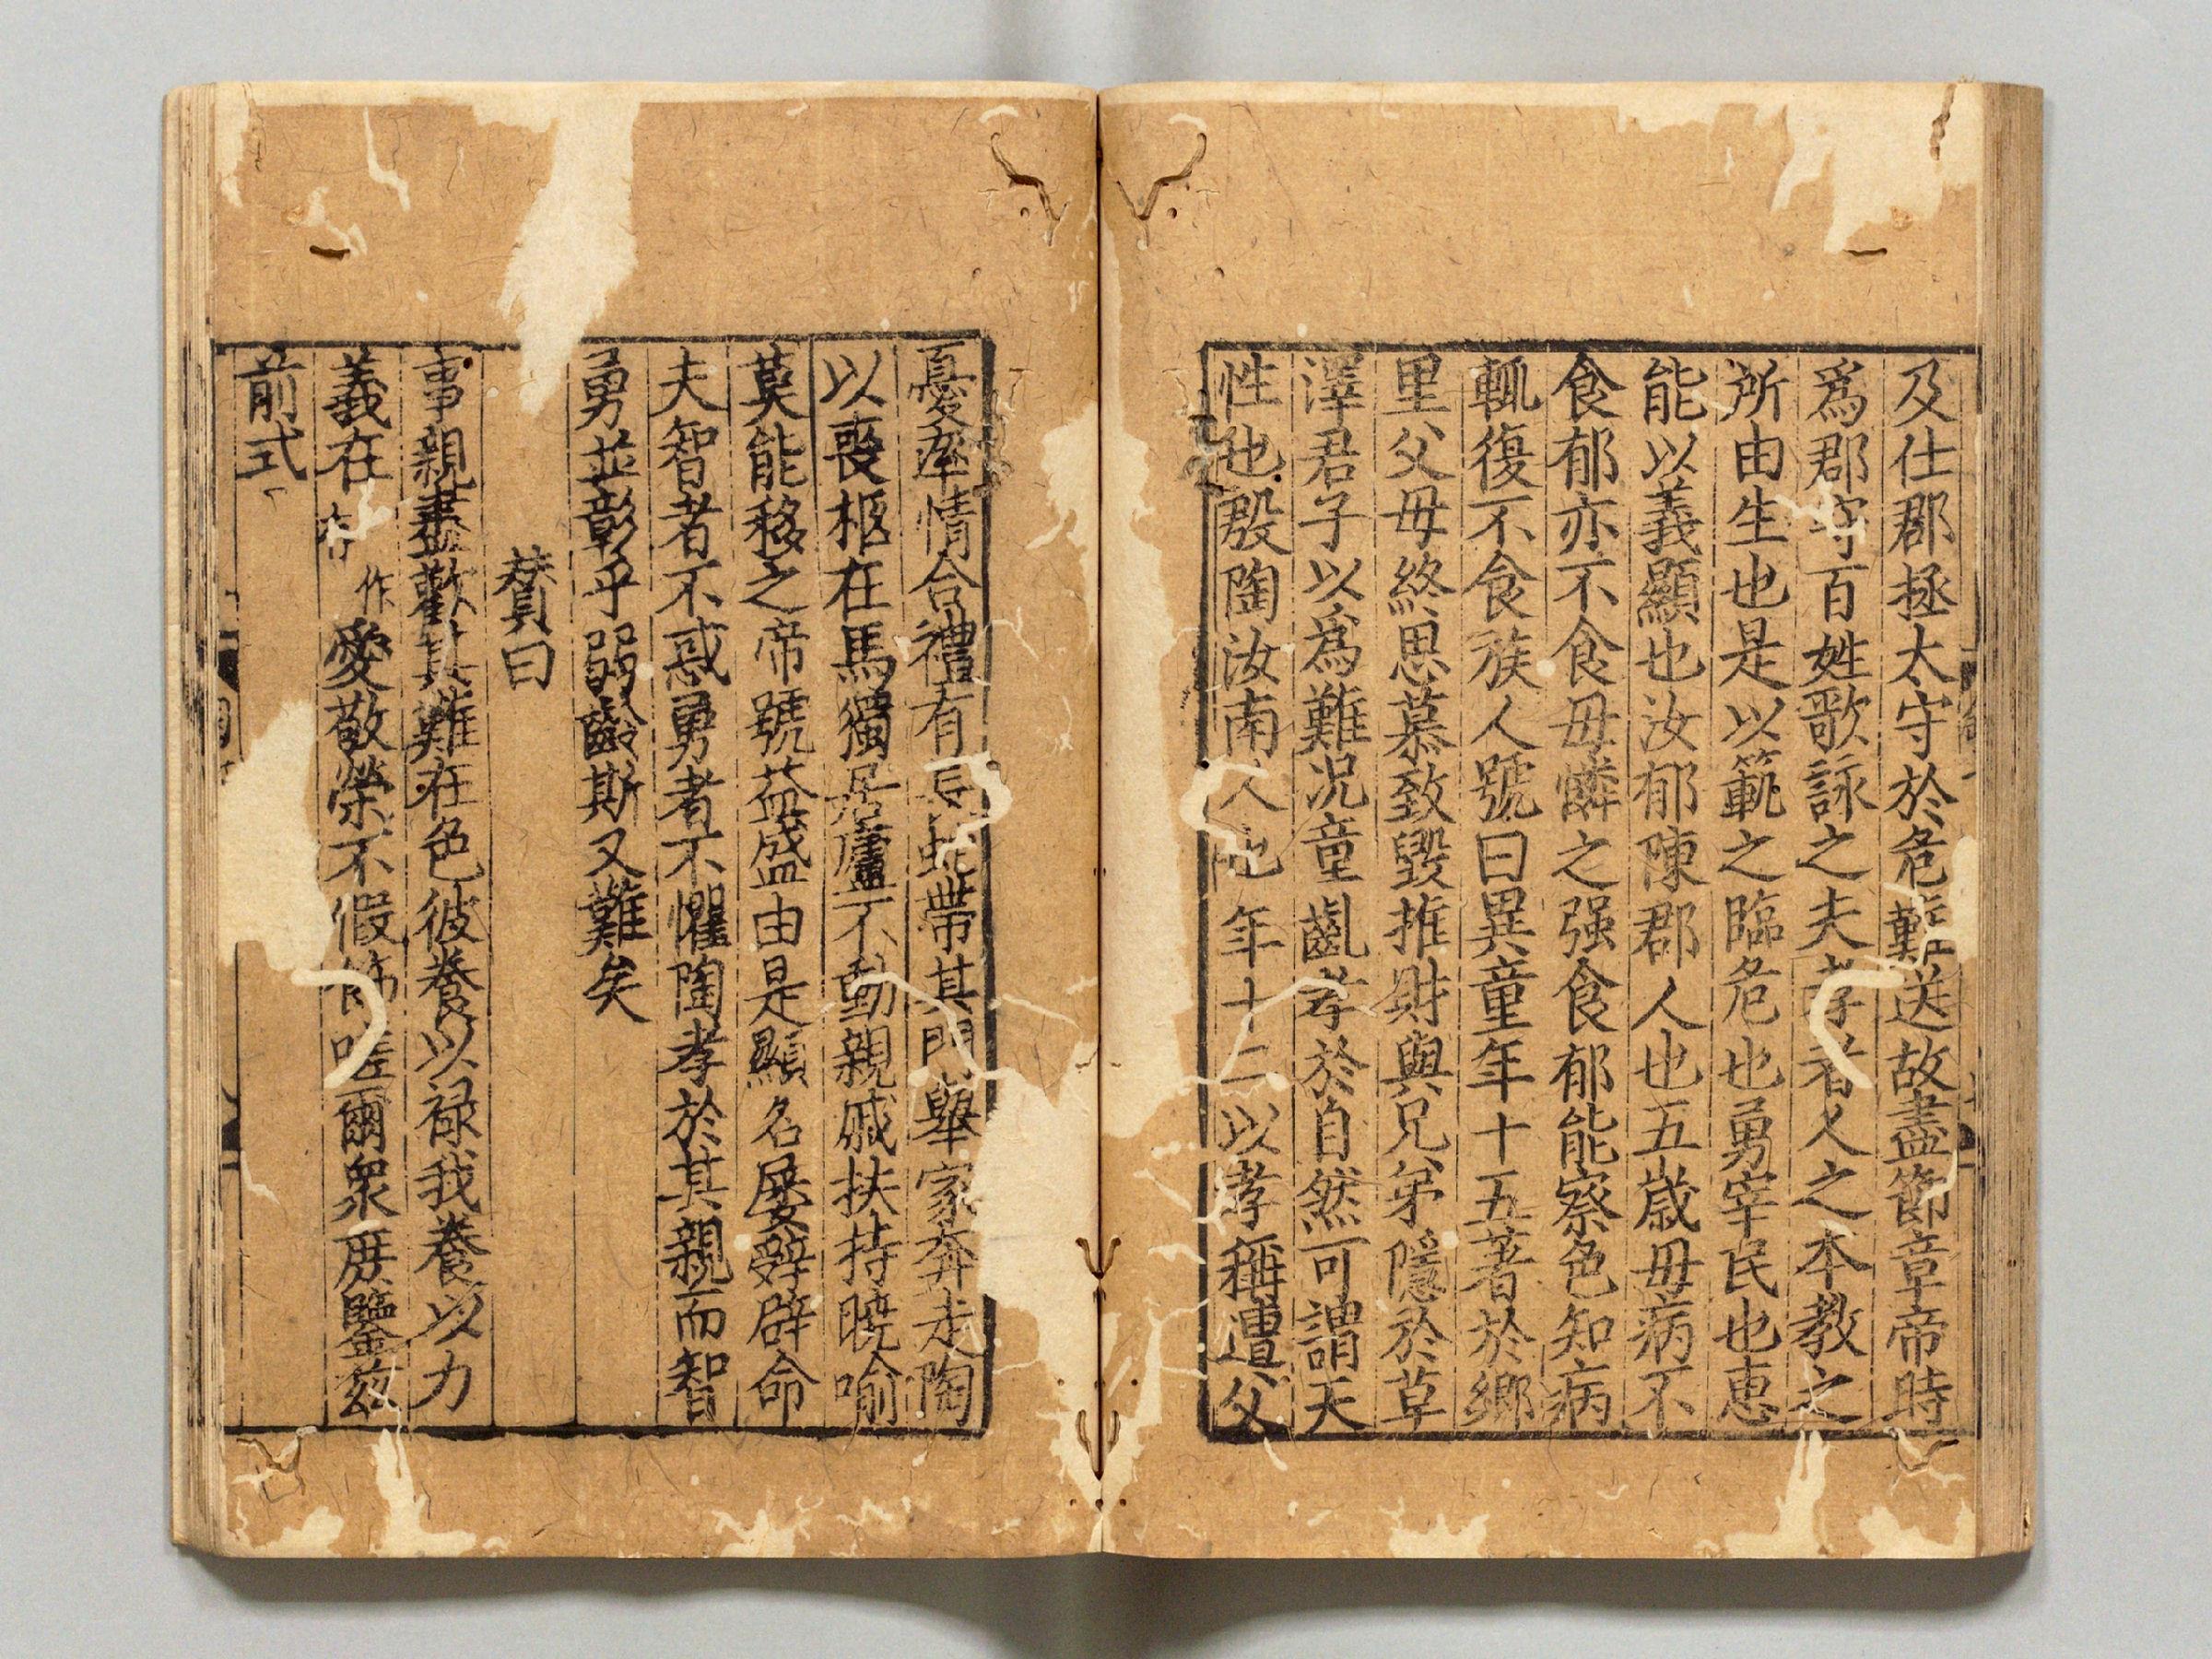 及仕郡拯太守於危難送故盡節章帝時
爲郡守百姓歌詠之夫孝者人之本教之
所由生也是以範之臨危也勇宰民也惠
能以義顯也汝郁陳郡人也五歳毋病不
食郁亦不食毋憐之强食郁能察色知病
輒復不食族人號曰異童年十五著於鄉
里父毋終思慕致毀推財與兄弟隱於草
澤君子以爲難况童齓孝於自然可謂天
性也殷陶汝南人也年十二以孝稱遭父
憂率情合禮有長蛇帶其門舉家奔走陶
以喪柩在焉獨居廬不動親戚扶持曉喻
莫能移之帝號益盛由是顯名屢辭辟命
夫智者不惑勇者不懼陶孝於其親而智
勇並彰乎弱齡斯又難矣
賛曰
事親盡歡其難在色彼養以禄我養以力
義在 存 作 愛敬榮不假飾嗟爾衆庶鑒茲
前式